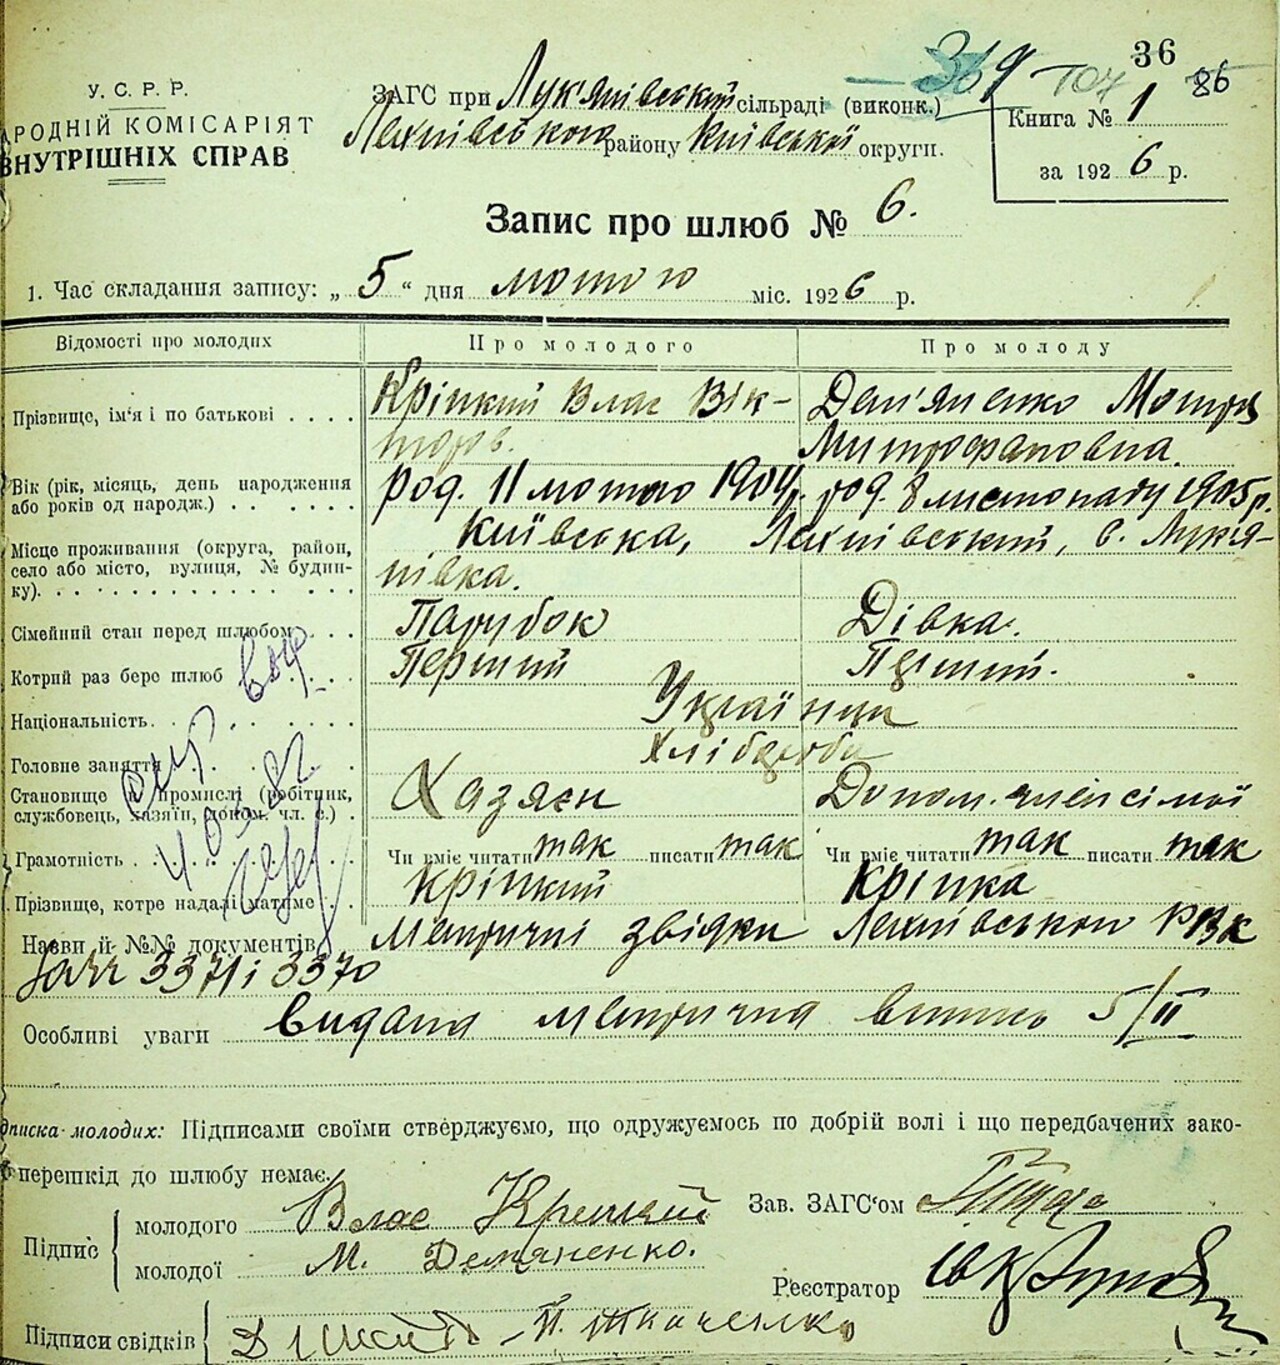 36
369 107 86
У. С. Р. Р.
АРОДНІЙ КОМІСАРІЯТ
ВНУТРІШНІХ СПРАВ
ЗАГС при Лук'янівський сільраді (виконк.)
Яхнівського району Київської округи.
Книга № 1
за 1926 р.
Запис про шлюб № 6.
1. Час складання запису: „ 5 “ дня лютого міс. 1926 р.
Відомості про молодих Про молодого Про молоду
Прізвище, ім'я і по батькові . . . . Кріпкий Влас Вік- Дем'яненко Мотря
торов. Митрофановна.
Вік (рік, місяць, день народження род. 11 лютого 1904 р. род. 8 листопаду 1905 р.
або років од народж.) . . . . . . .
Місце проживання (округа, район, Київська, Яхнівський, с. Лук'я-
село або місто, вулиця, № будин- нівка.
ку). . . . . . . . . . . . . .
Сімейний стан перед шлюбом . . . Парубок Дівка.
Котрий раз бере шлюб . . . . Перший Перший.
Національність. . . . . . . . Українци
Головне заняття . . . . . . . Хлібороби
Становище в промислі (робітник, Хазяєн Допом. член сімої
службовець, хазяїн, допом. чл. с.) .
Грамотність . . . . . . . . Чи вміє читати так писати так Чи вміє читати так писати так
Прізвище, котре надалі матиме . . Кріпкий Кріпка
Назви й №№ документів Метричні звідки Яхнівського РВК
3371 і 3370
Особливі уваги видана метрична випись 5/II
дписка молодих: Підписами своїми стверджуємо, що одружуємось по добрій волі і що передбачених зако-
перешкід до шлюбу немає.
Підпис молодого Влас Крепкий
молодої М. Демяненко.
Зав. ЗАГС'ом
Реєстратор
Підписи свідків П. Ткаченко